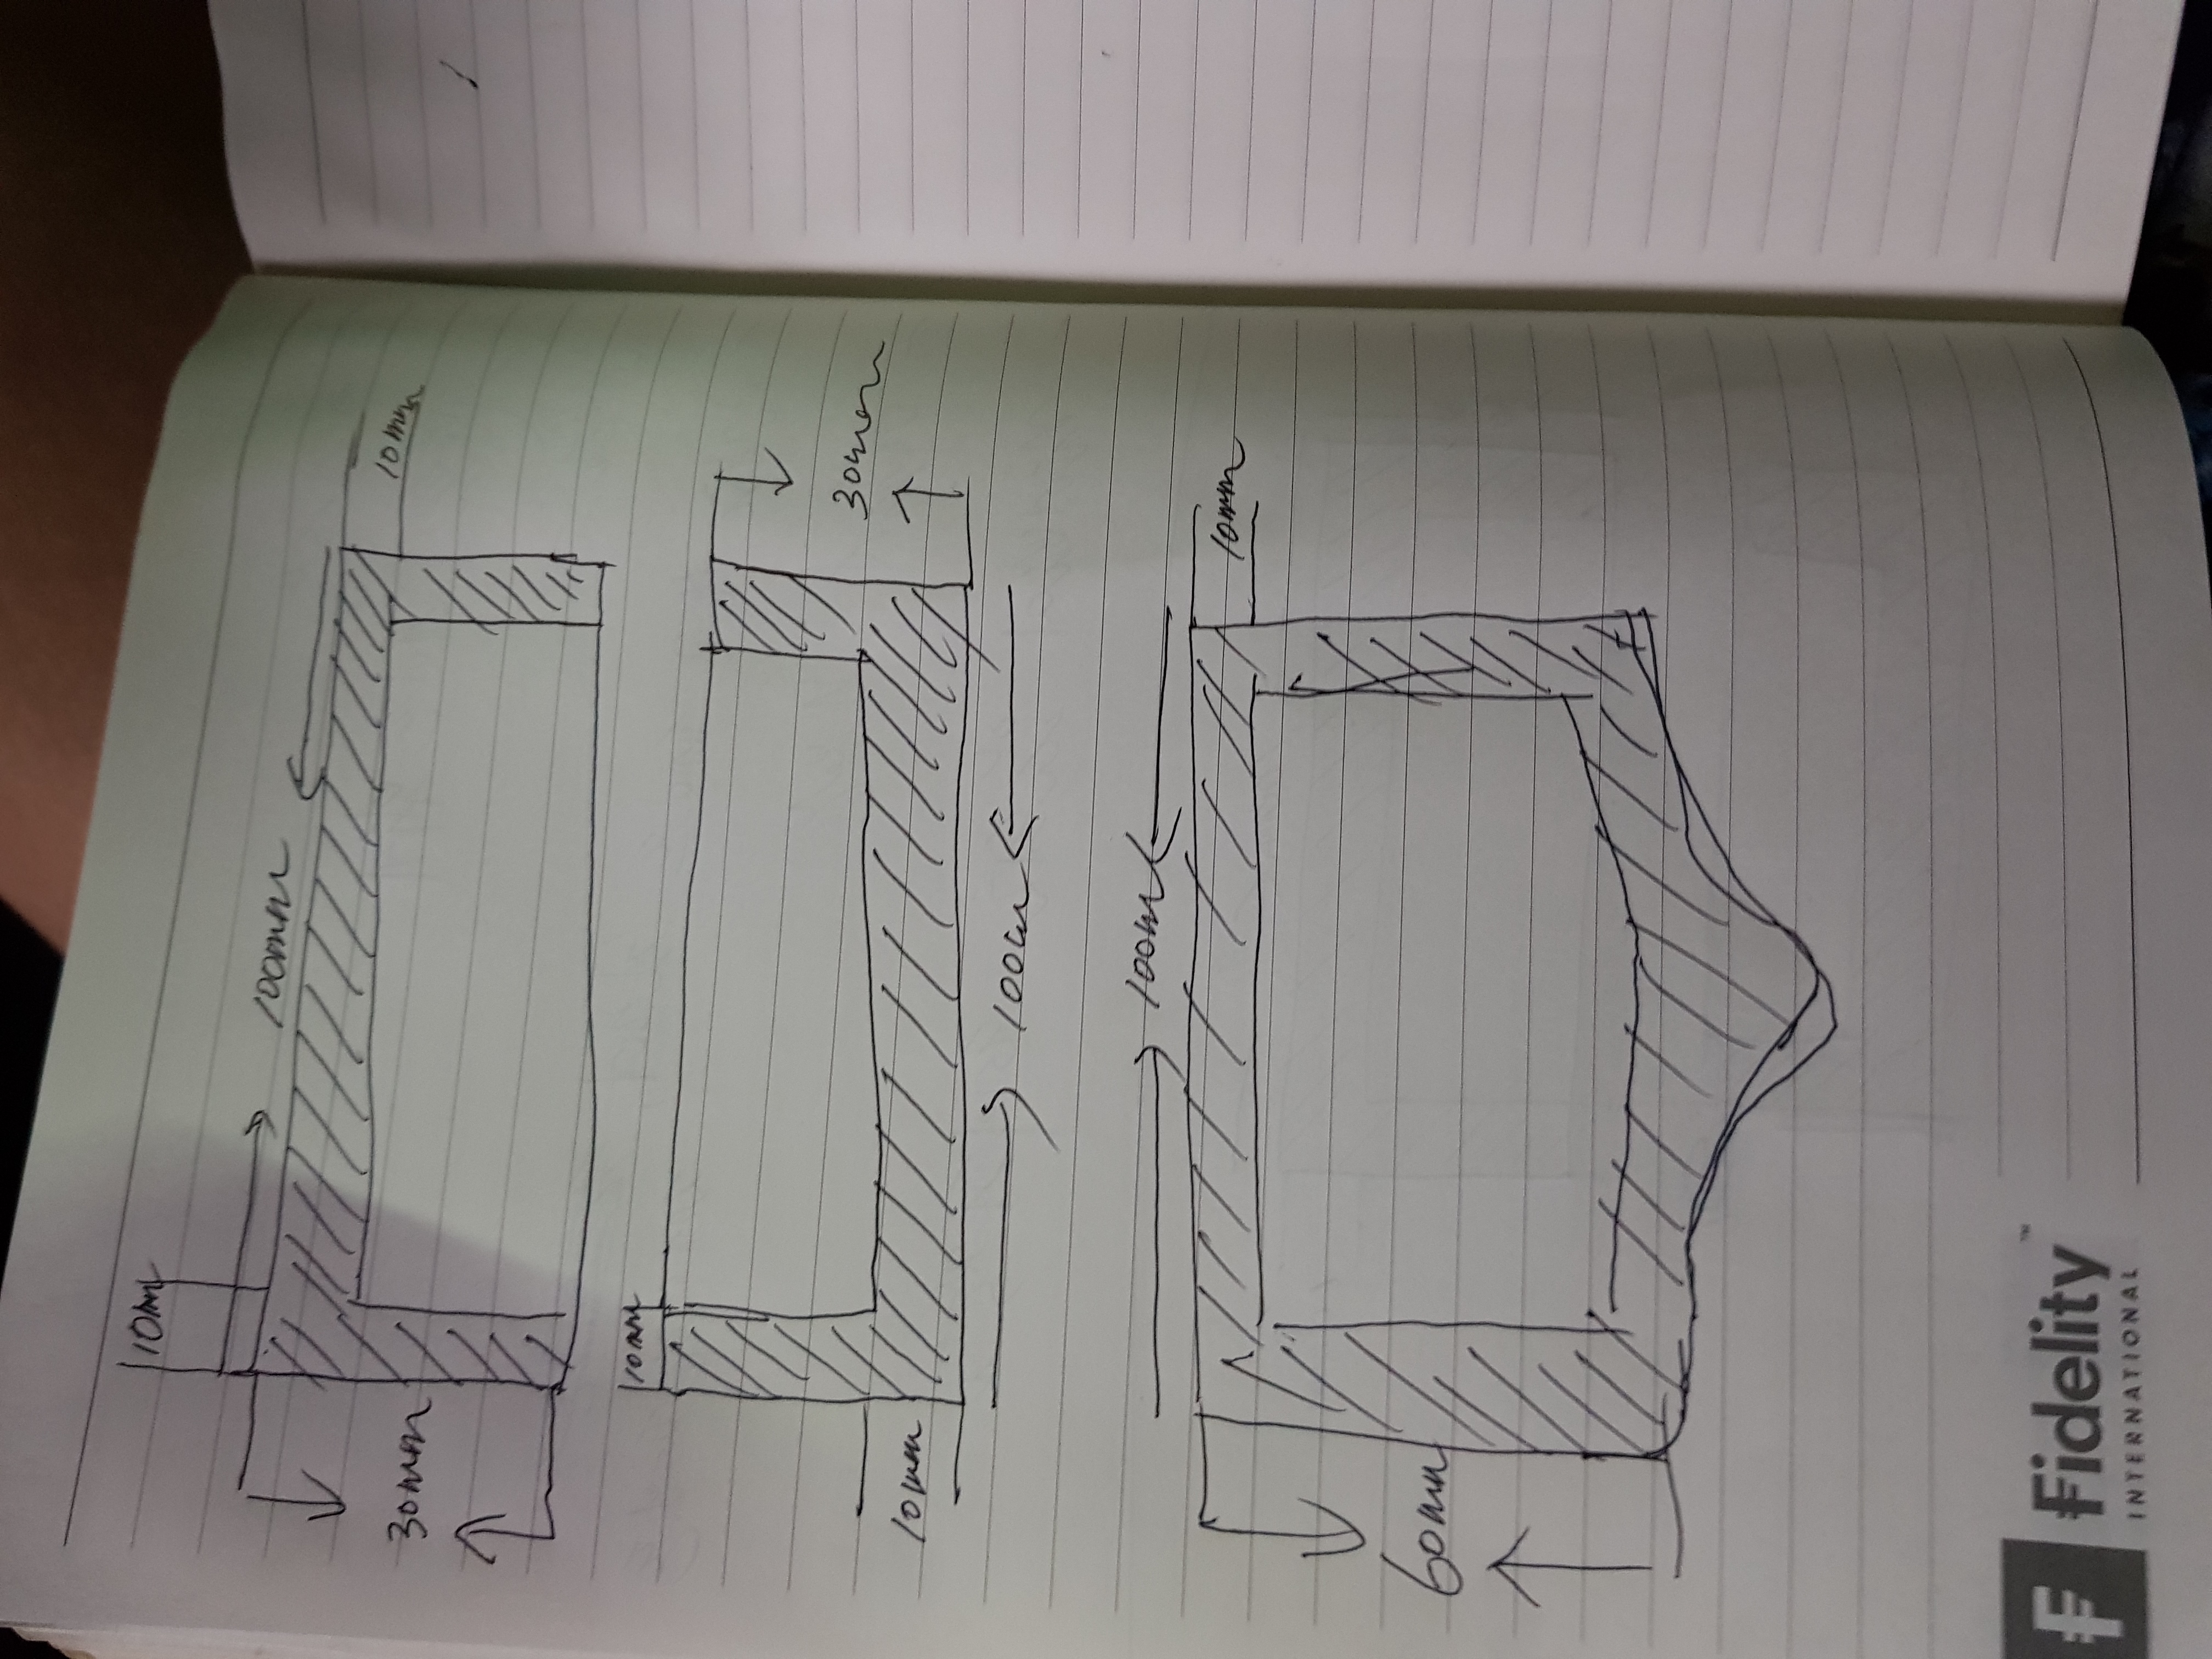 10mm
100mm
10mm
30mm
10mm
30mm
10mm
100cm
100m
10mm
60mm
Fidelity™
INTERNATIONAL